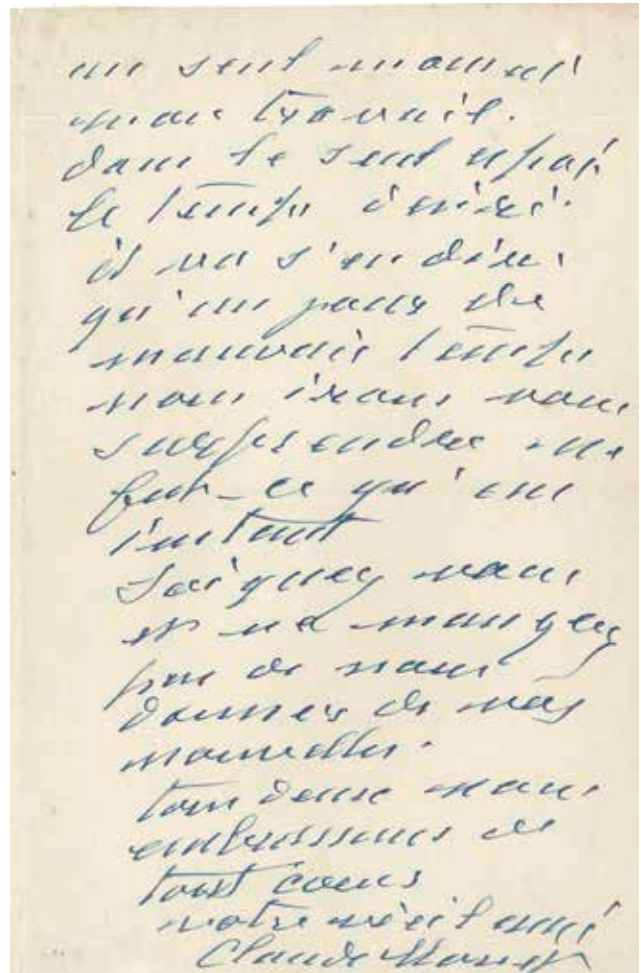 un seul moment
mon travail.
dans le seul espoir
le temps
il va s'en dire
qu'un jour de
mauvais temps
nous irons vous
surprendre ne
fut-ce qu'un
instant
Soignez vous
et ne manquez
pas de nous
donner de vos
nouvelles.
tous deux nous
embrassons de
tout coeur
votre vieil ami
Claude Monet